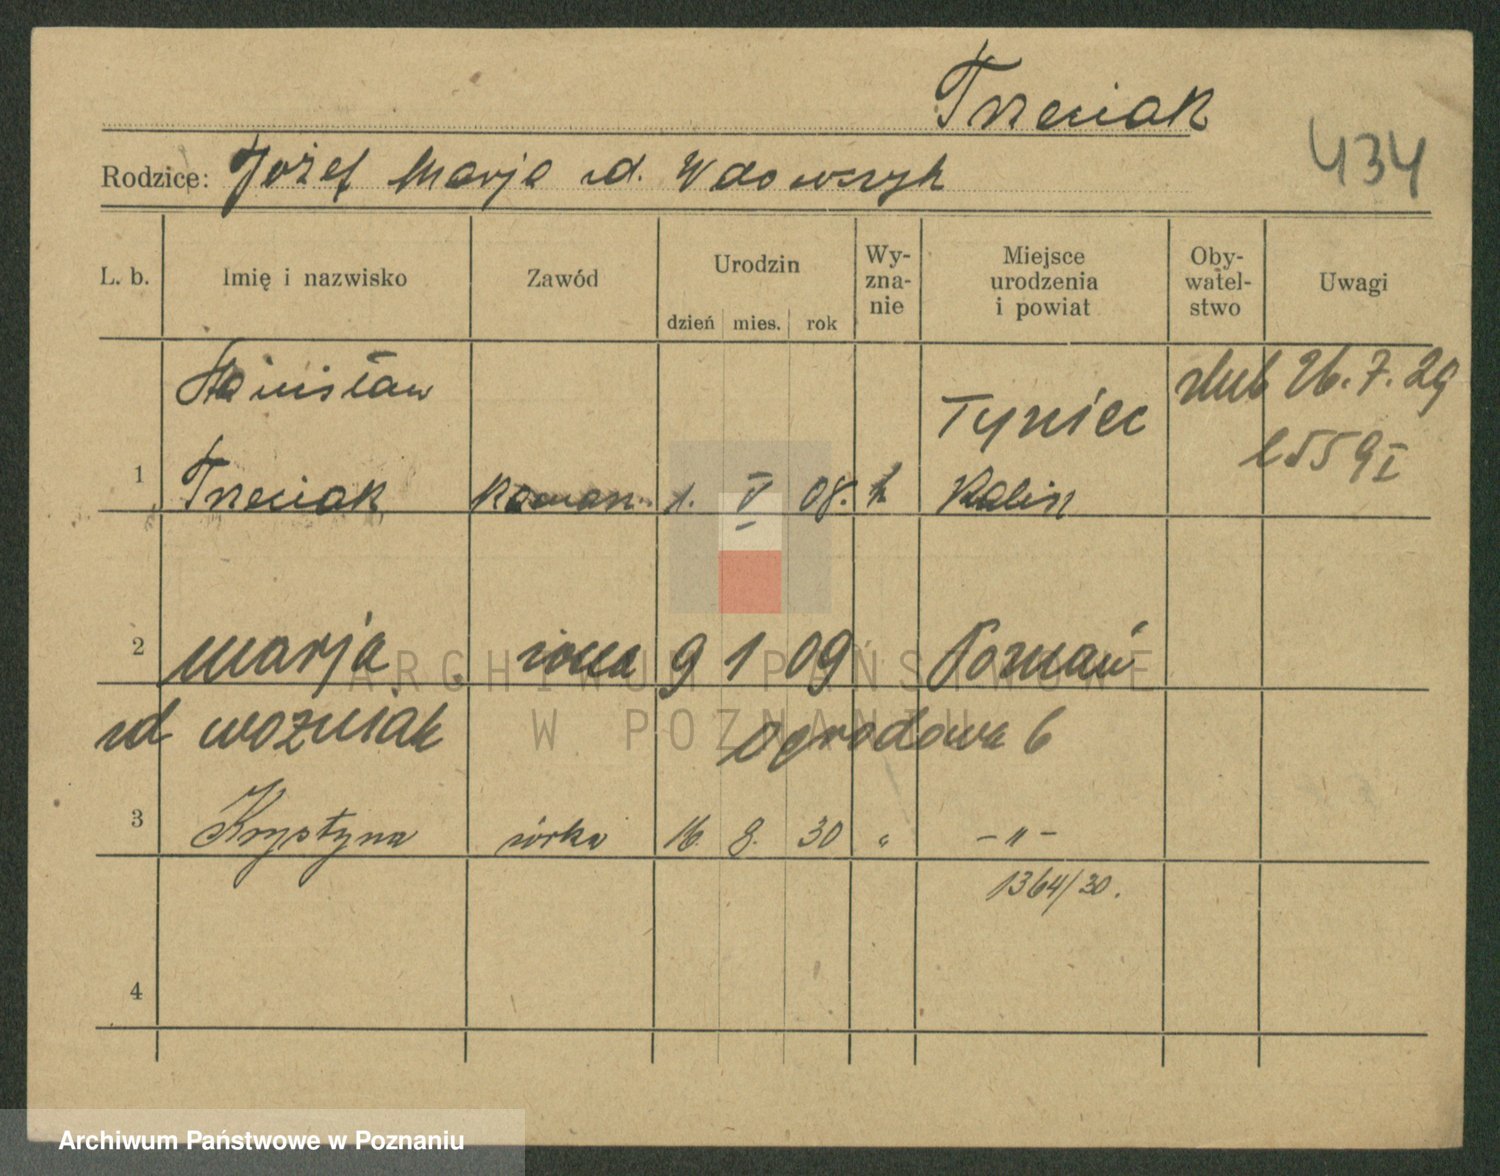 Trzeciak
434
Rodzice: Józef Marja zd. Wdowczyk
L. b. Imię i nazwisko Zawód Urodzin Wy-zna-nie Miejsce urodzenia i powiat Oby-watel-stwo Uwagi
dzień mies. rok
Stanisław Tyniec ślub 26.7.29
1 Trzeciak 1. V 08. k Kalisz 559 I
2 Marja żona 9 1 09 Poznań
zd Woźniak Ogrodowa 6
3 Krystyna córka 16. 8. 30 " – " –
1364/30.
4
ARCHIWUM PAŃSTWOWE
W POZNANIU
Archiwum Państwowe w Poznaniu